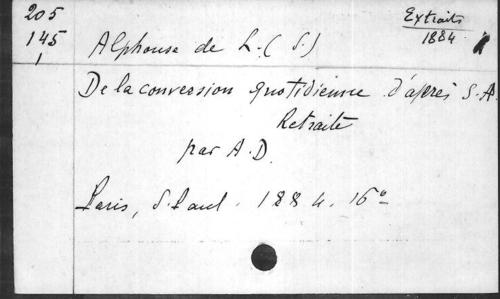 205
145
1
Extraits
1884
Alphonse de L. (S.)
De la conversion quotidienne d'après S. A
Retraite
par A. D.
Paris, S. Paul. 1884. 16°